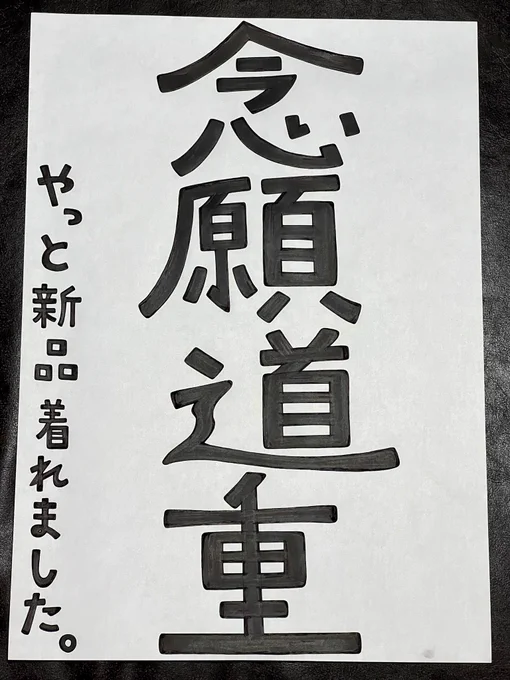 念願道重
やっと新品着れました。